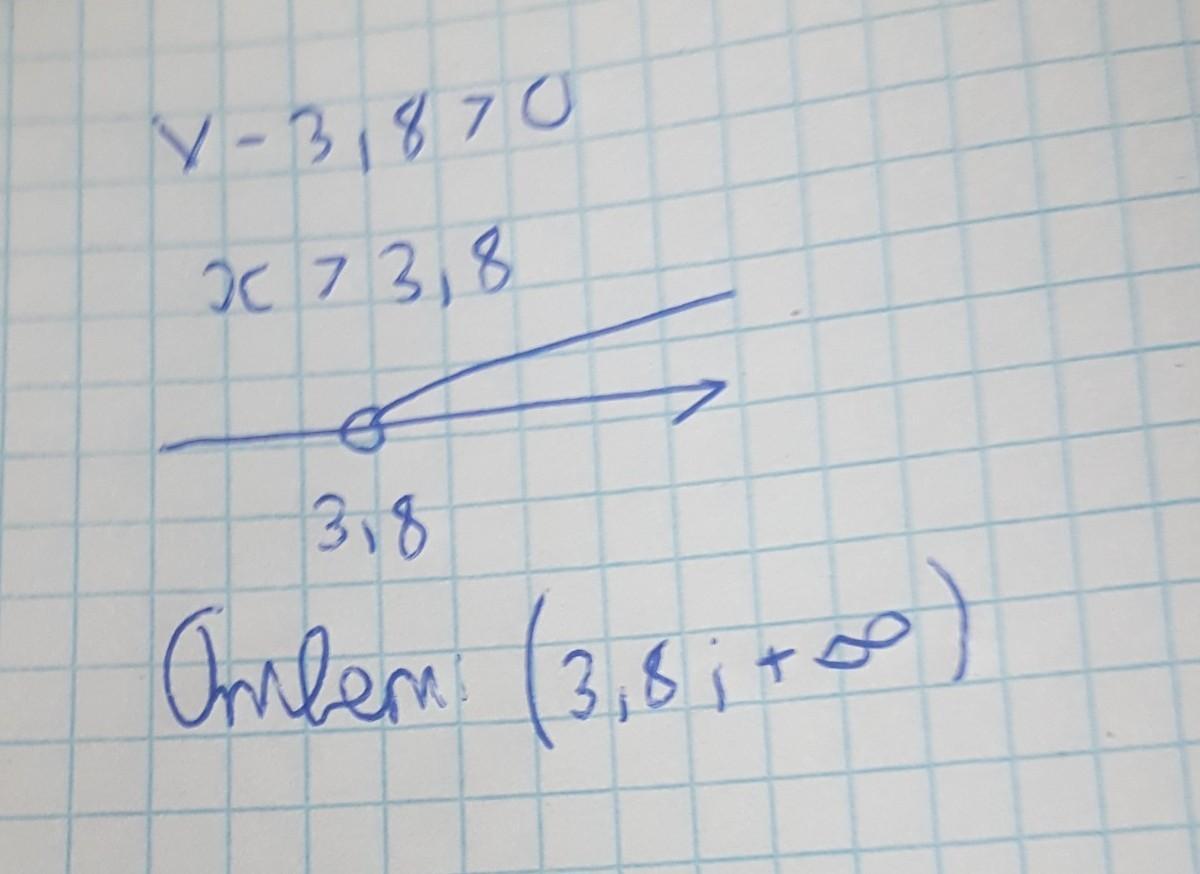 v - 3,8 > 0
x > 3,8
3,8
Ответ: (3,8; +∞)